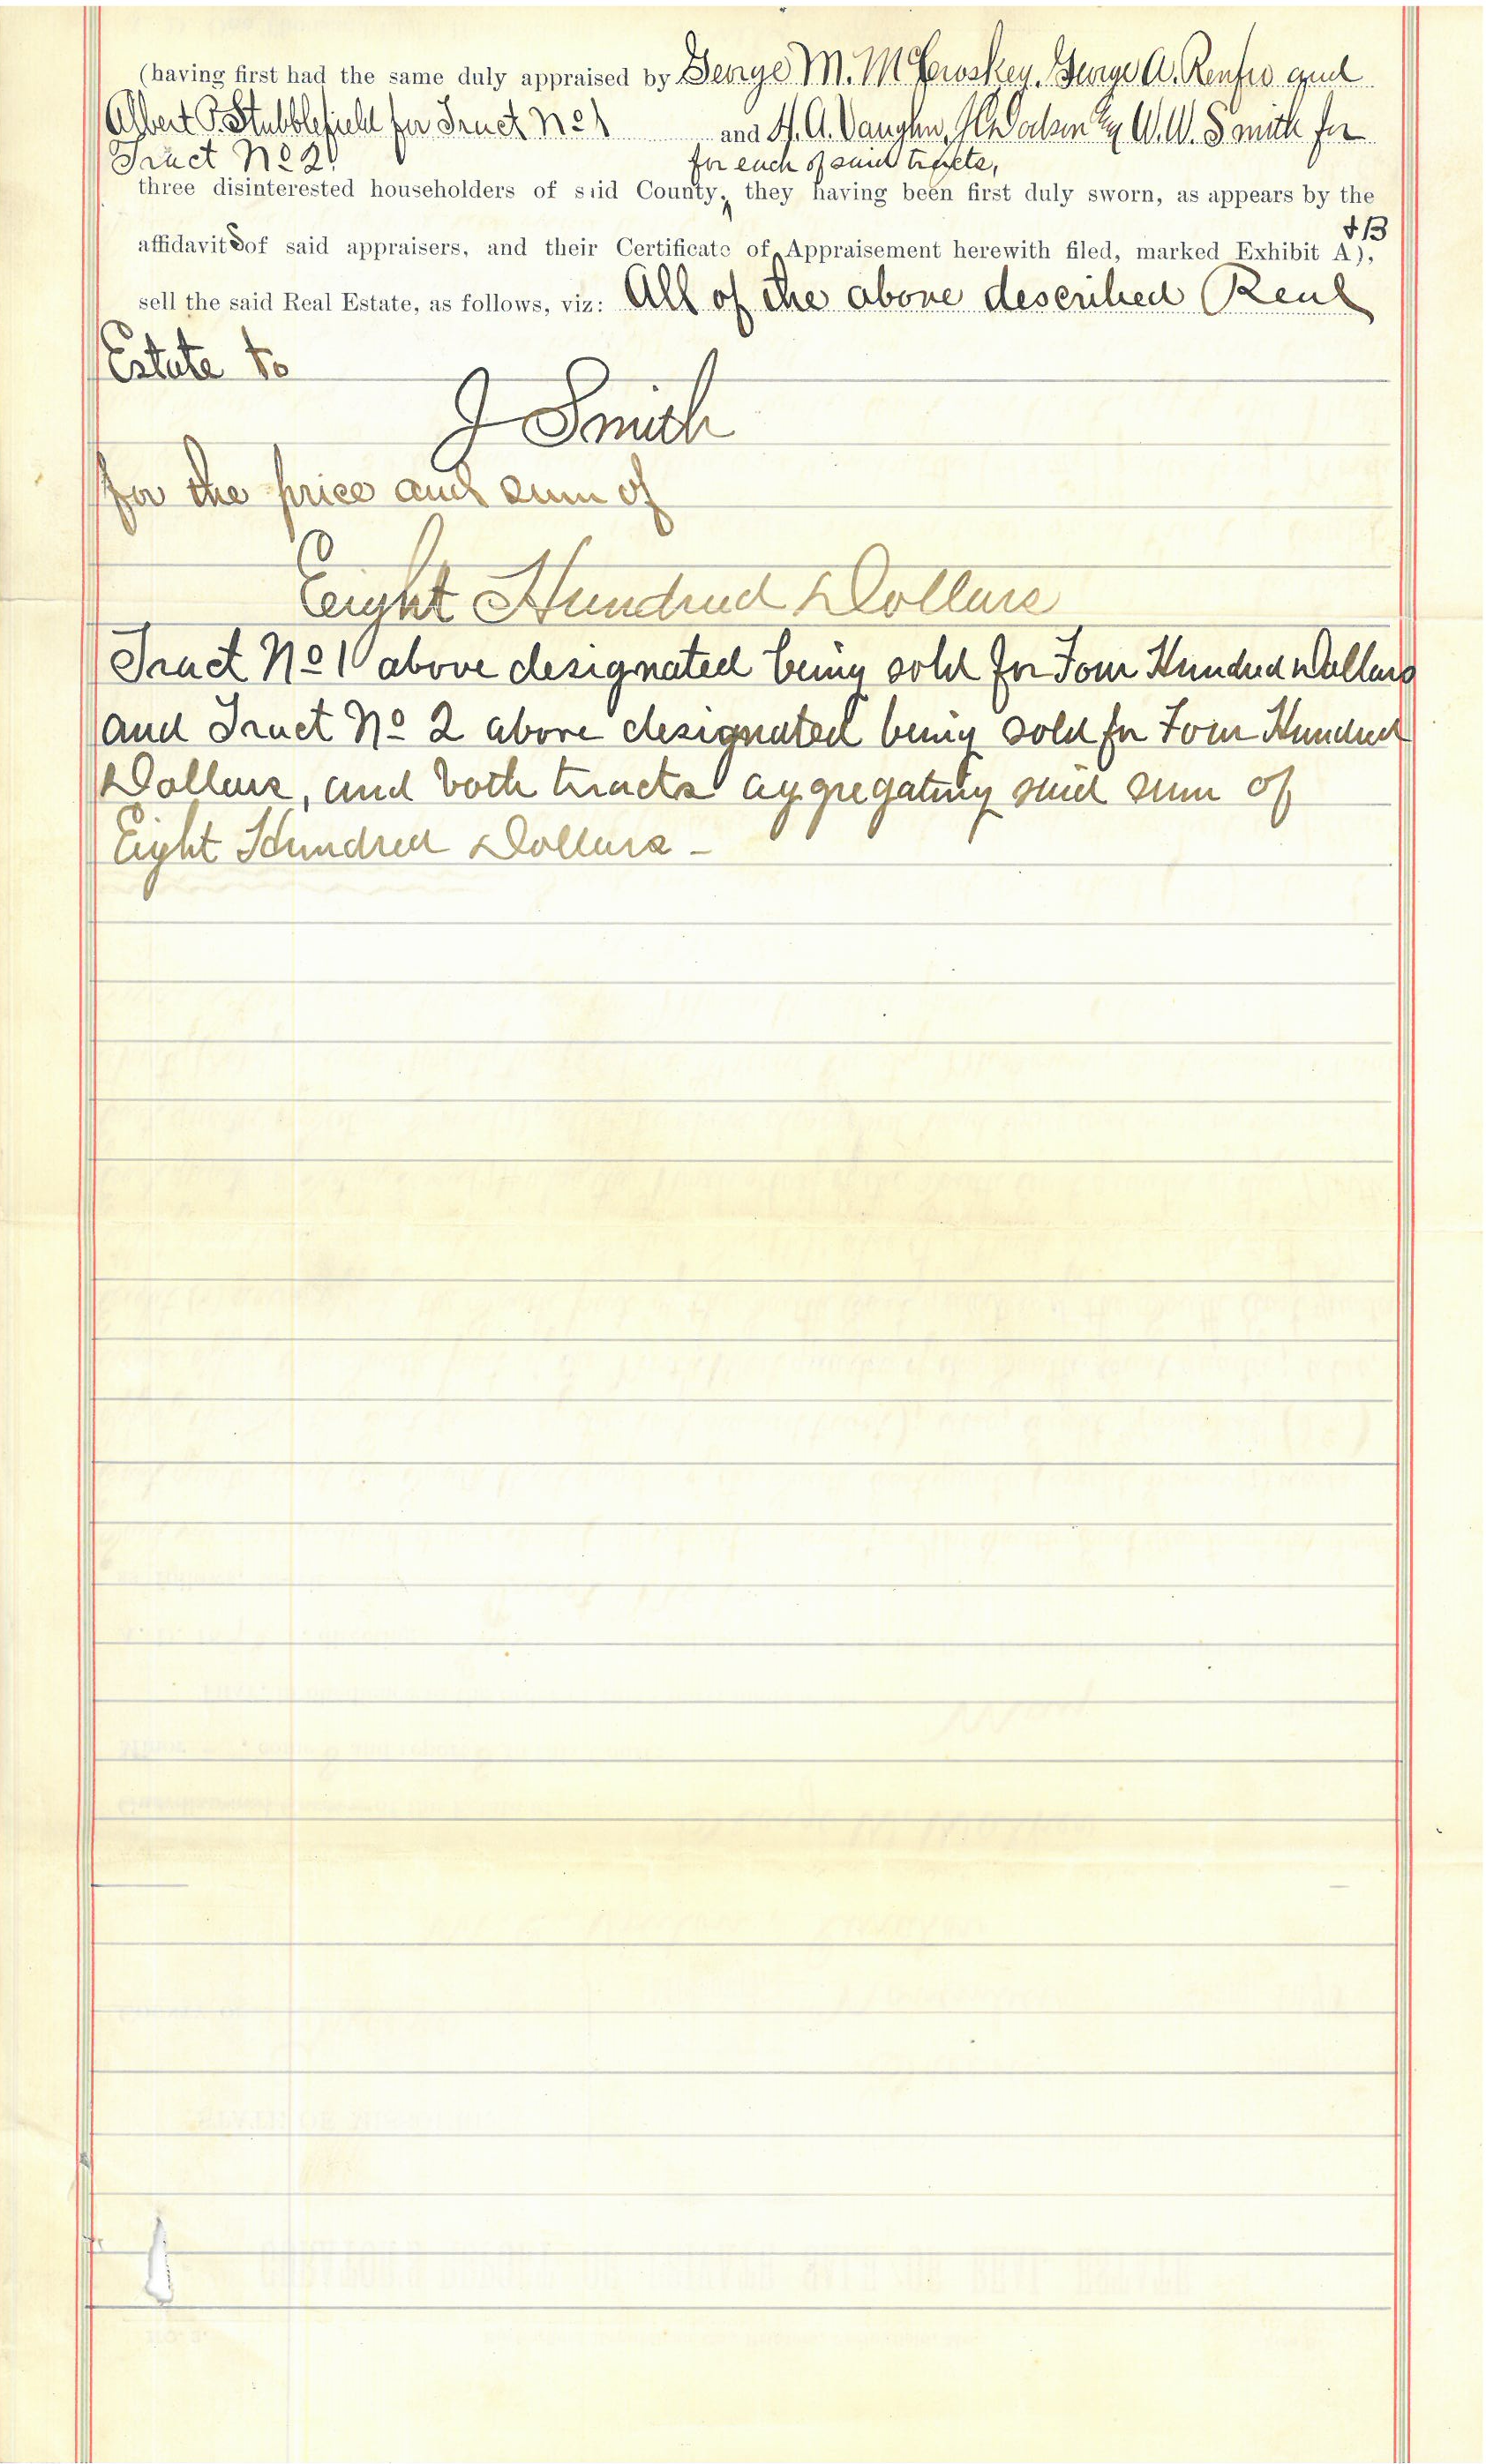 (having first had the same duly appraised by George M. McCroskey, George A. Renfro and
Albert P. Stubblefield for Tract No 1 and H. A. Vaughn, & W. W. Smith for
Tract No 2 for each of said tracts,
three disinterested householders of said County, they having been first duly sworn, as appears by the
& B
affidavits of said appraisers, and their Certificate of Appraisement herewith filed, marked Exhibit A),
sell the said Real Estate, as follows, viz: All of the above described Real
Estate to
J Smith
for the price and sum of
Eight Hundred Dollars
Tract No 1 above designated being sold for Four Hundred Dollars
and Tract No 2 above designated being sold for Four Hundred
Dollars, and both tracts aggregating said sum of
Eight Hundred Dollars -